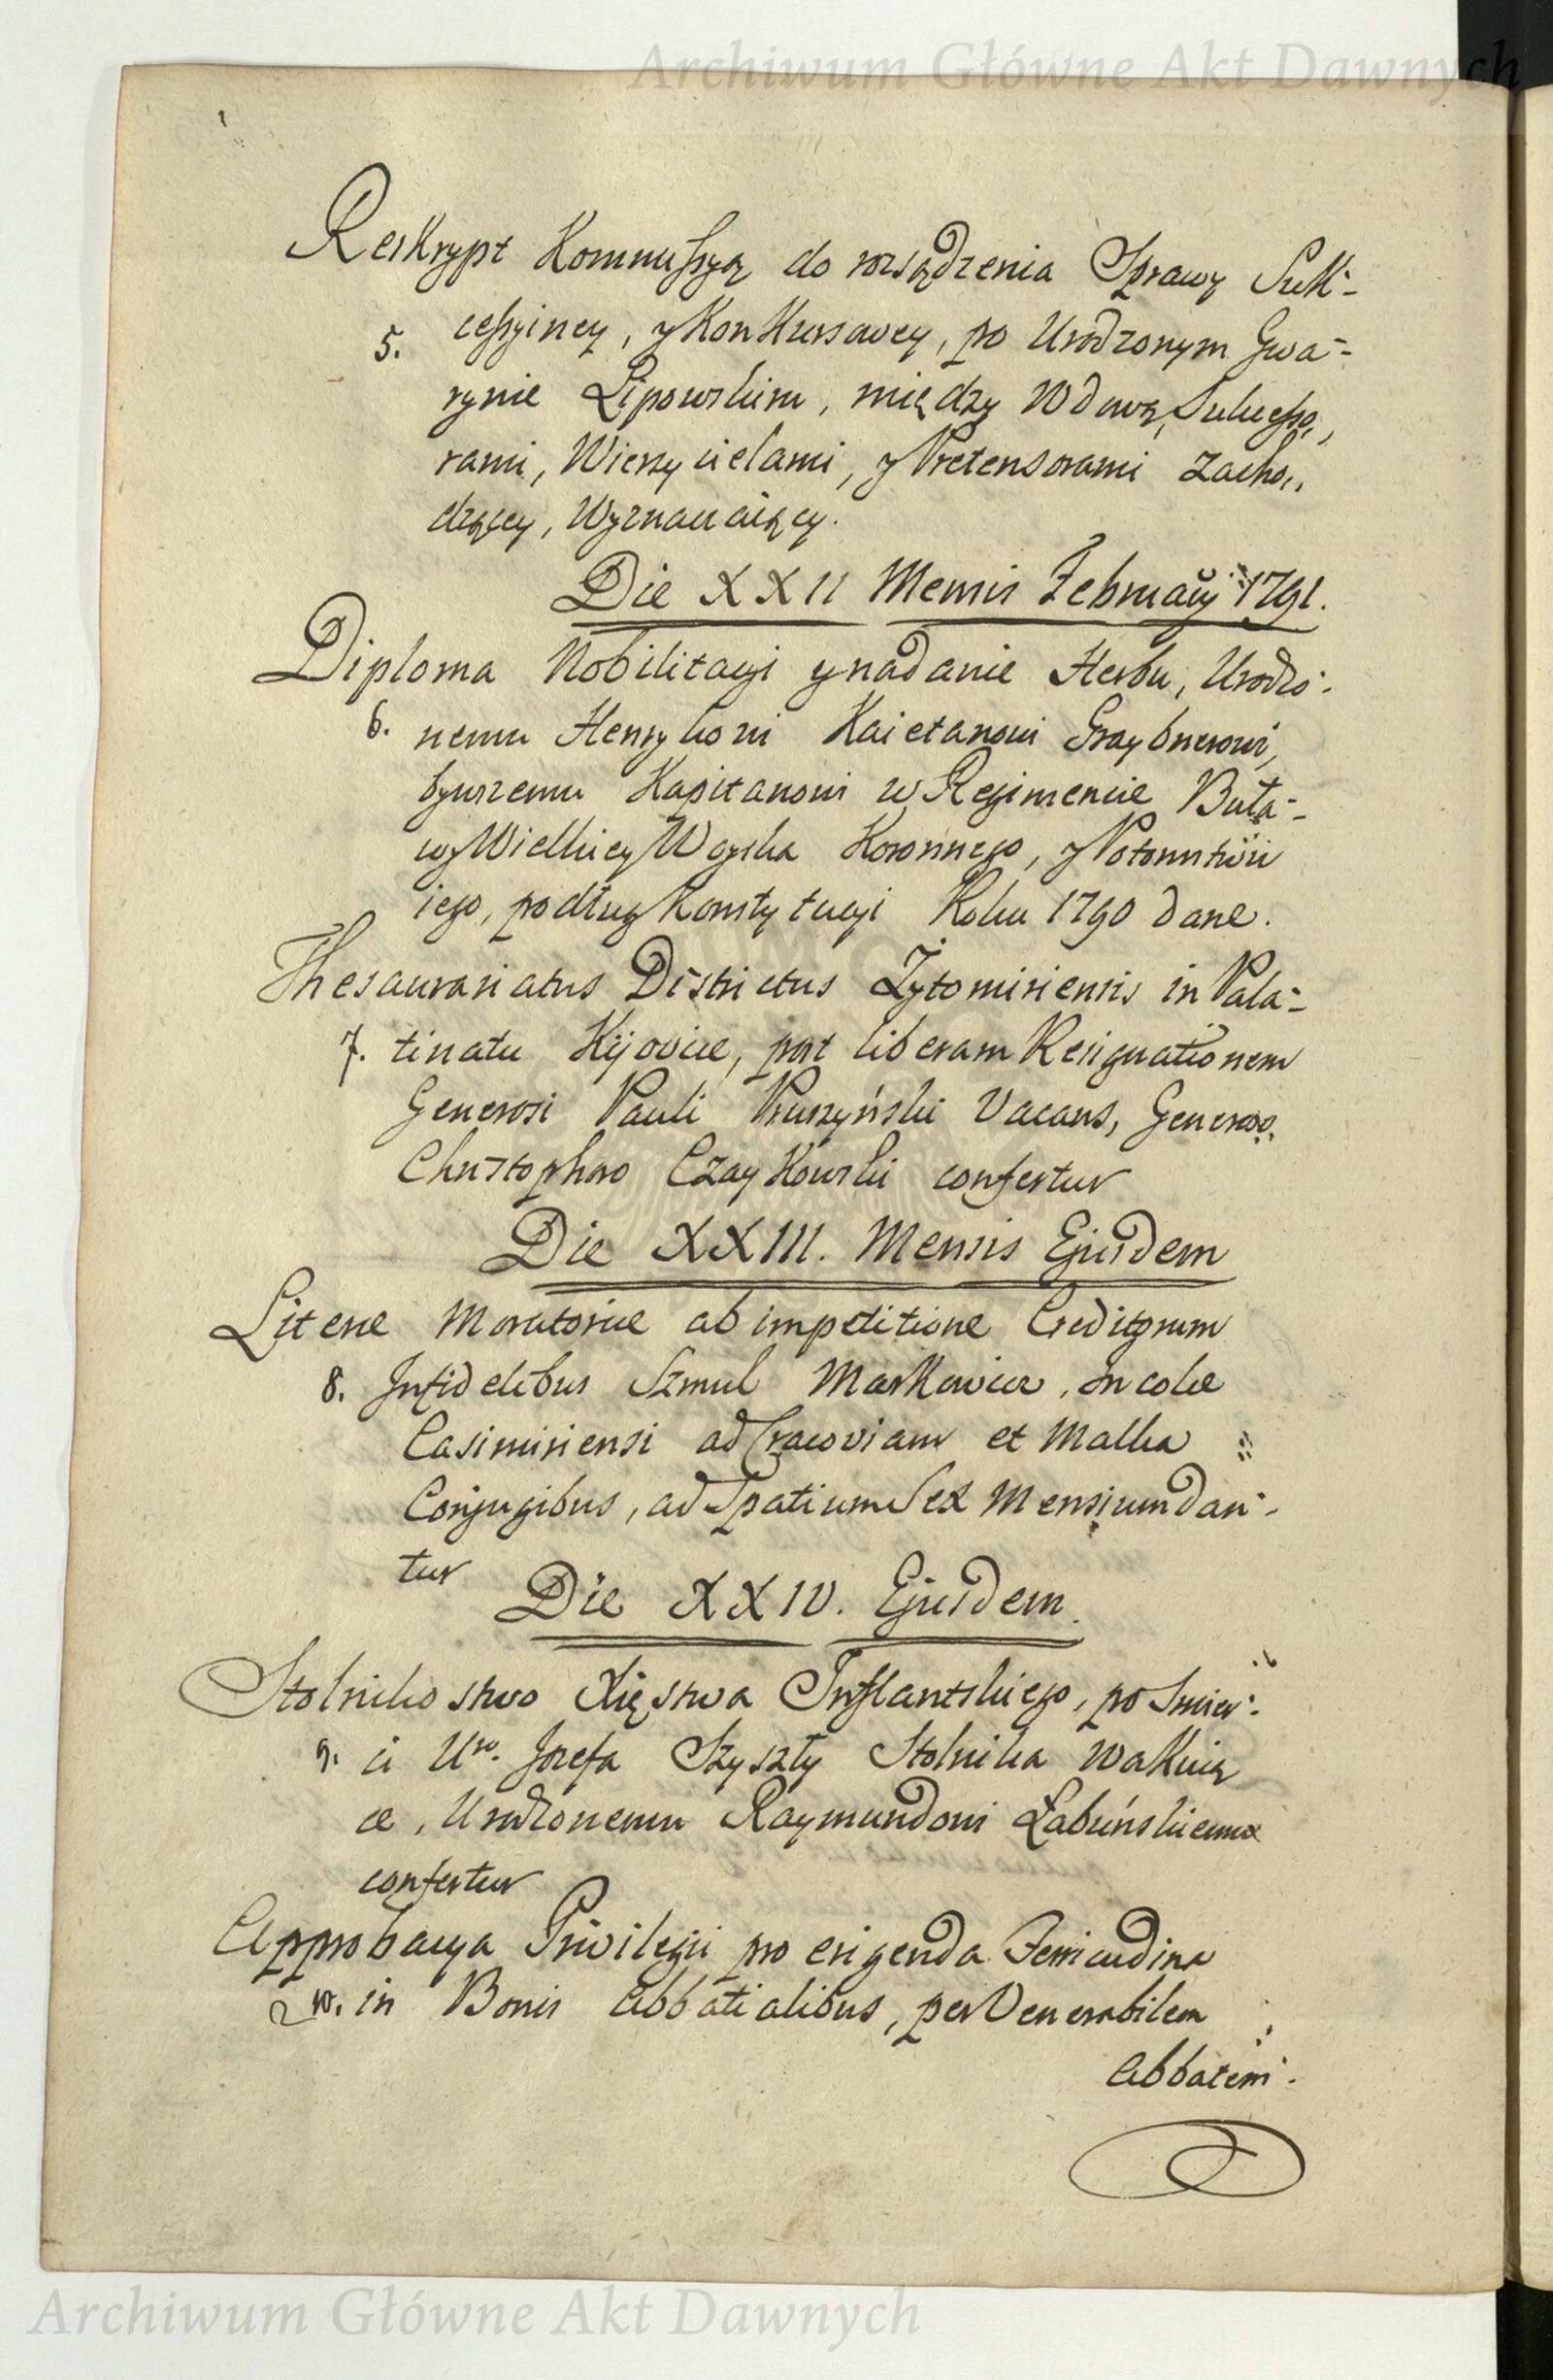 Archiwum Główne Akt Dawnych
Reskrypt Kommissyą do rozsądzenia Sprawy Suk-
5. cessyiney, y Konkursowey, po Urodzonym Gwa-
rynie Lipowskim, między Wdową, Sukcesso,
rami, Wierzycielami, y Pretensorami zacho,,
dzącey, Wyznaczaiący.
Die XXII Mensis Februarij 1791.
Diploma Nobilitacyi y nadanie Herbu, Urodzo-
6. nemu Henrykowi Kaietanowi Graybnerowi,
bywszemu Kapitanowi w Regimencie Buła-
wy Wielkiey Woyska Koronnego, y Potomstwu
iego, podług Konstytucyi Roku 1790 dane.
Thesaurariatus Districtus Zytomiriensis in Pala-
7. tinatu Kijoviæ, post liberam Resignationem
Generosi Pauli Pruszyński Vacans, Generoso
Christophoro Czaykowski confertur
Die XXIII. Mensis Ejusdem
Literæ Moratoriæ ab impetitione Creditorum
8. Infidelibus Szmul Markowicz, Incolæ
Casimiriensi ad Cracoviam et Malka
Conjugibus, ad Spatium Sex Mensium dan-
tur
Die XXIV. Ejusdem
Stolnikostwo Xięstwa Inflantskiego, po Smier-
9. ci Uro. Jozefa Szyszły Stolnika Wakuią
ce, Urodzonemu Raymundowi Łabuńskiemu
confertur
Approbacya Privilegii pro erigenda Ferricudina
10. in Bonis Abbatialibus, per Venerabilem
Abbatem
Archiwum Główne Akt Dawnych